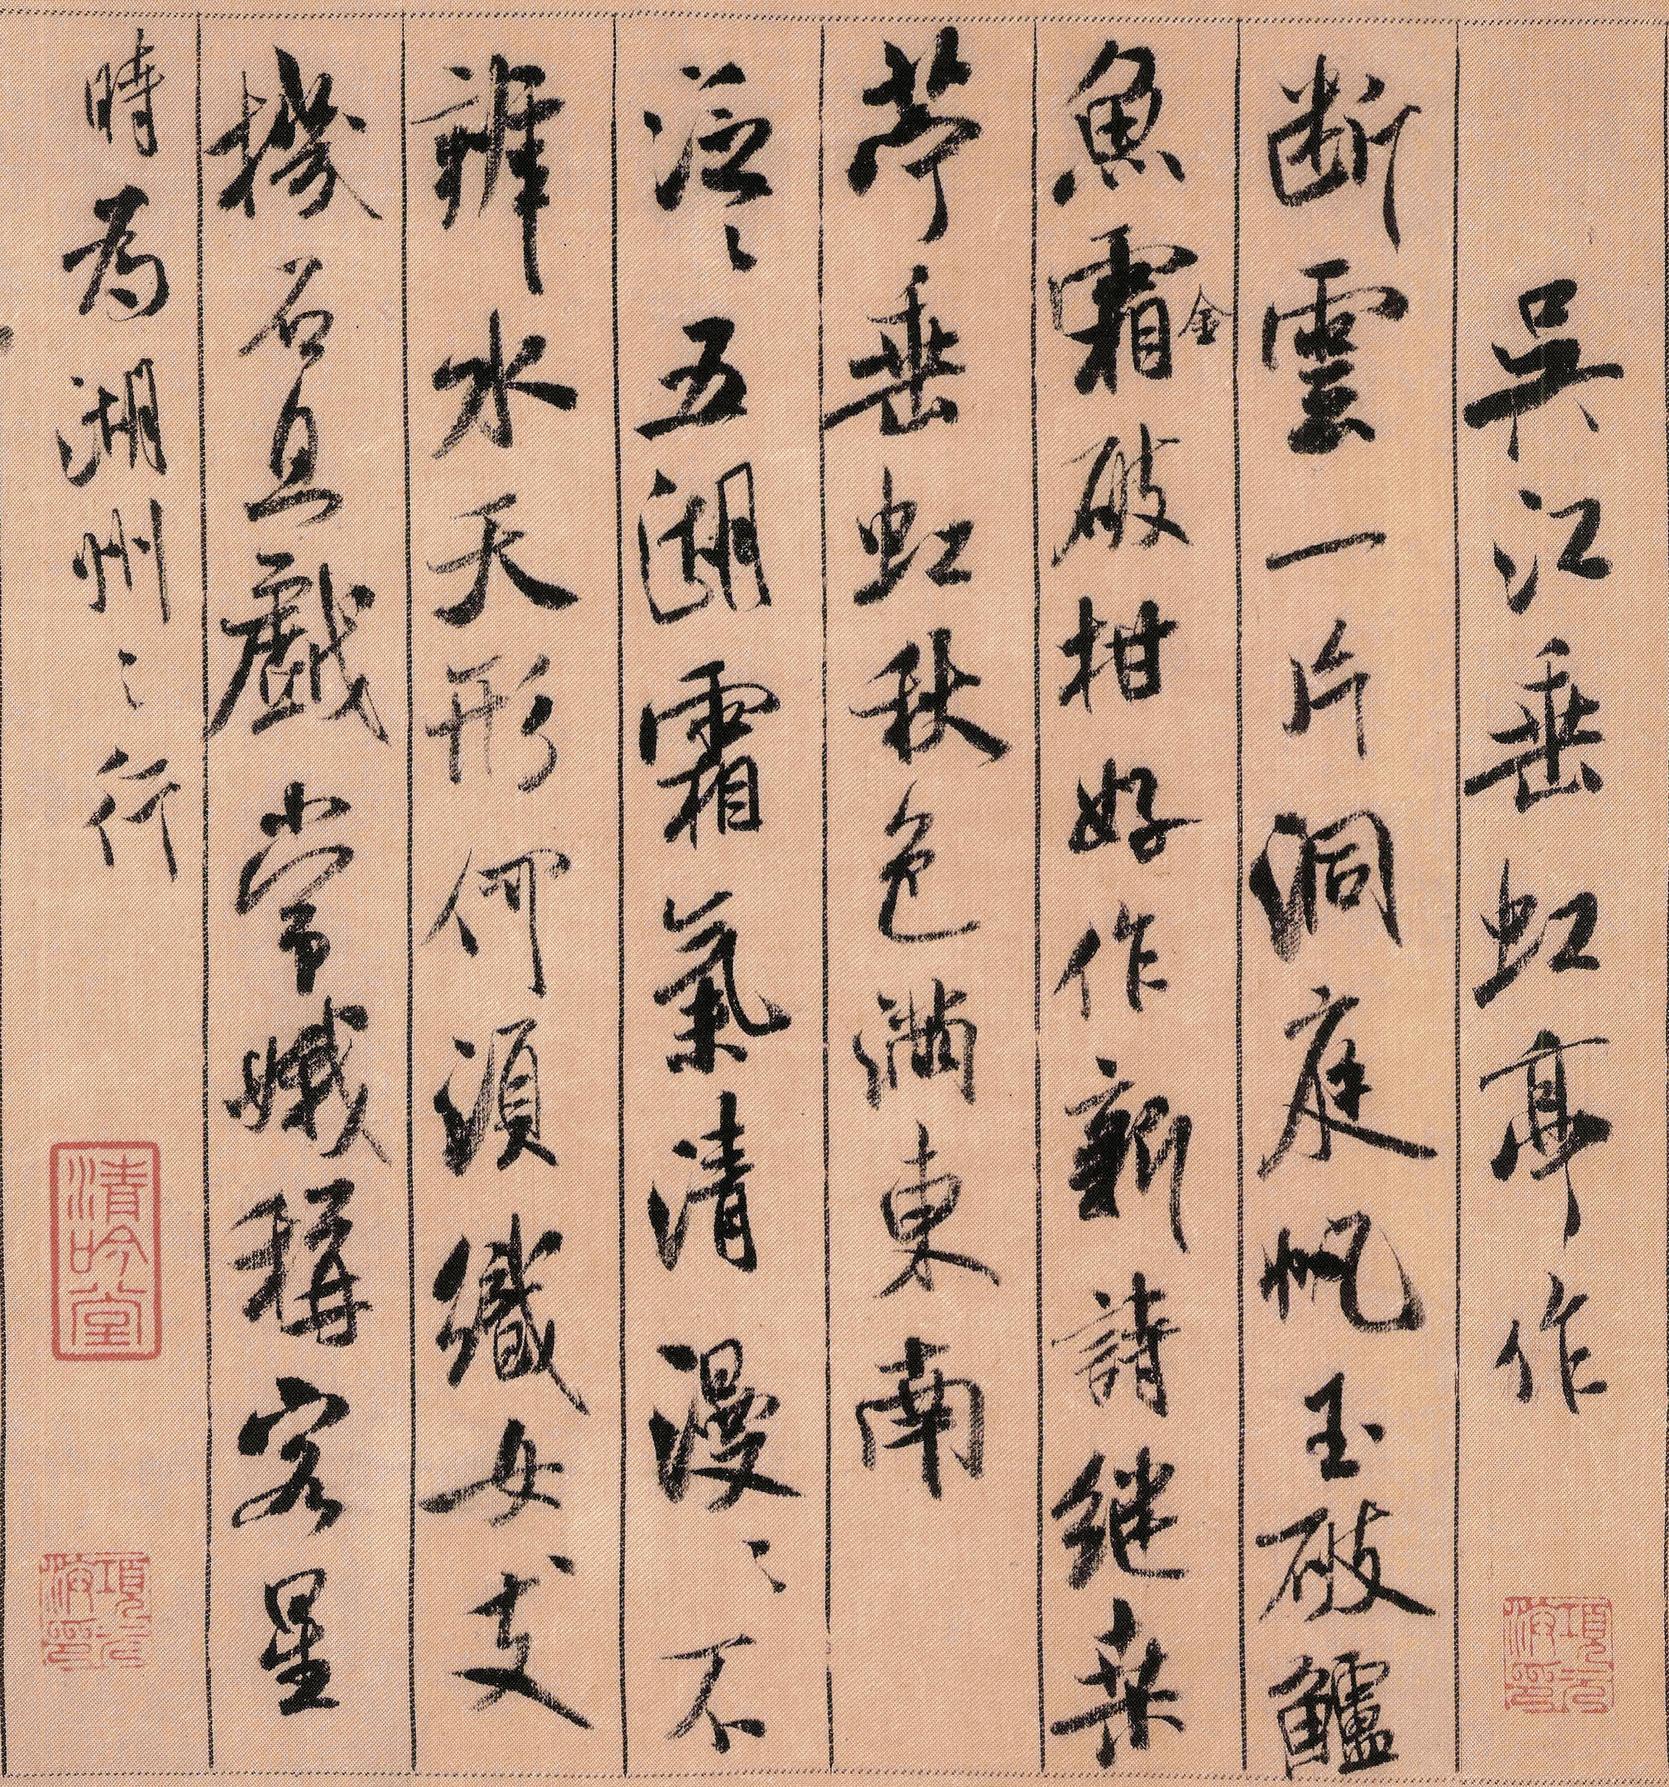 吳江垂虹亭作
斷雲一片洞庭帆玉破鱸
魚霜金破柑好作新詩継桑
苧垂虹秋色滿東南
泛〻五湖霜氣清漫〻不
辨水天形何須織女支
機石且戲常娥稱客星
時為湖州之行
清吟堂
項元汴印
項元汴印